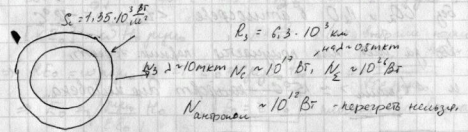 S_c = 1,35·10³ Вт/м²
R_з = 6,3·10³ км
на λ ~ 0,5 мкм
λ ~ 10 мкм N_c ~ 10¹⁷ Вт, N_Σ ~ 10²⁶ Вт
N_антропог ~ 10¹² Вт - перегреть нельзя.